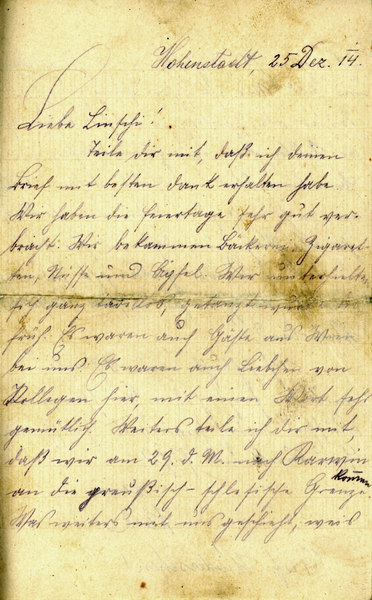 Hohenstadt, 25 Dez. 14.
Liebe Linschi!
Teile dir mit, daß ich deinen
Brief mit besten dank erhalten habe
Wir haben die Feiertage sehr gut ver-
bracht. Wir bekammen Bäckerei, Zigaret-
ten, Nüsse und Äpfel. Wir unterhielten
sich ganz tadellos, getanzt wurde
früh. Es waren auch Gäste aus Wien
bei uns. Es waren auch Liebchen von
Kollegen hier mit einen Wort sehr
gemütlich. Weiters teile ich dir mit,
daß wir am 29. d. M. nach Karwin
an die preußisch-schlesische Grenze kommen
Was weiters mit uns geschieht, weis